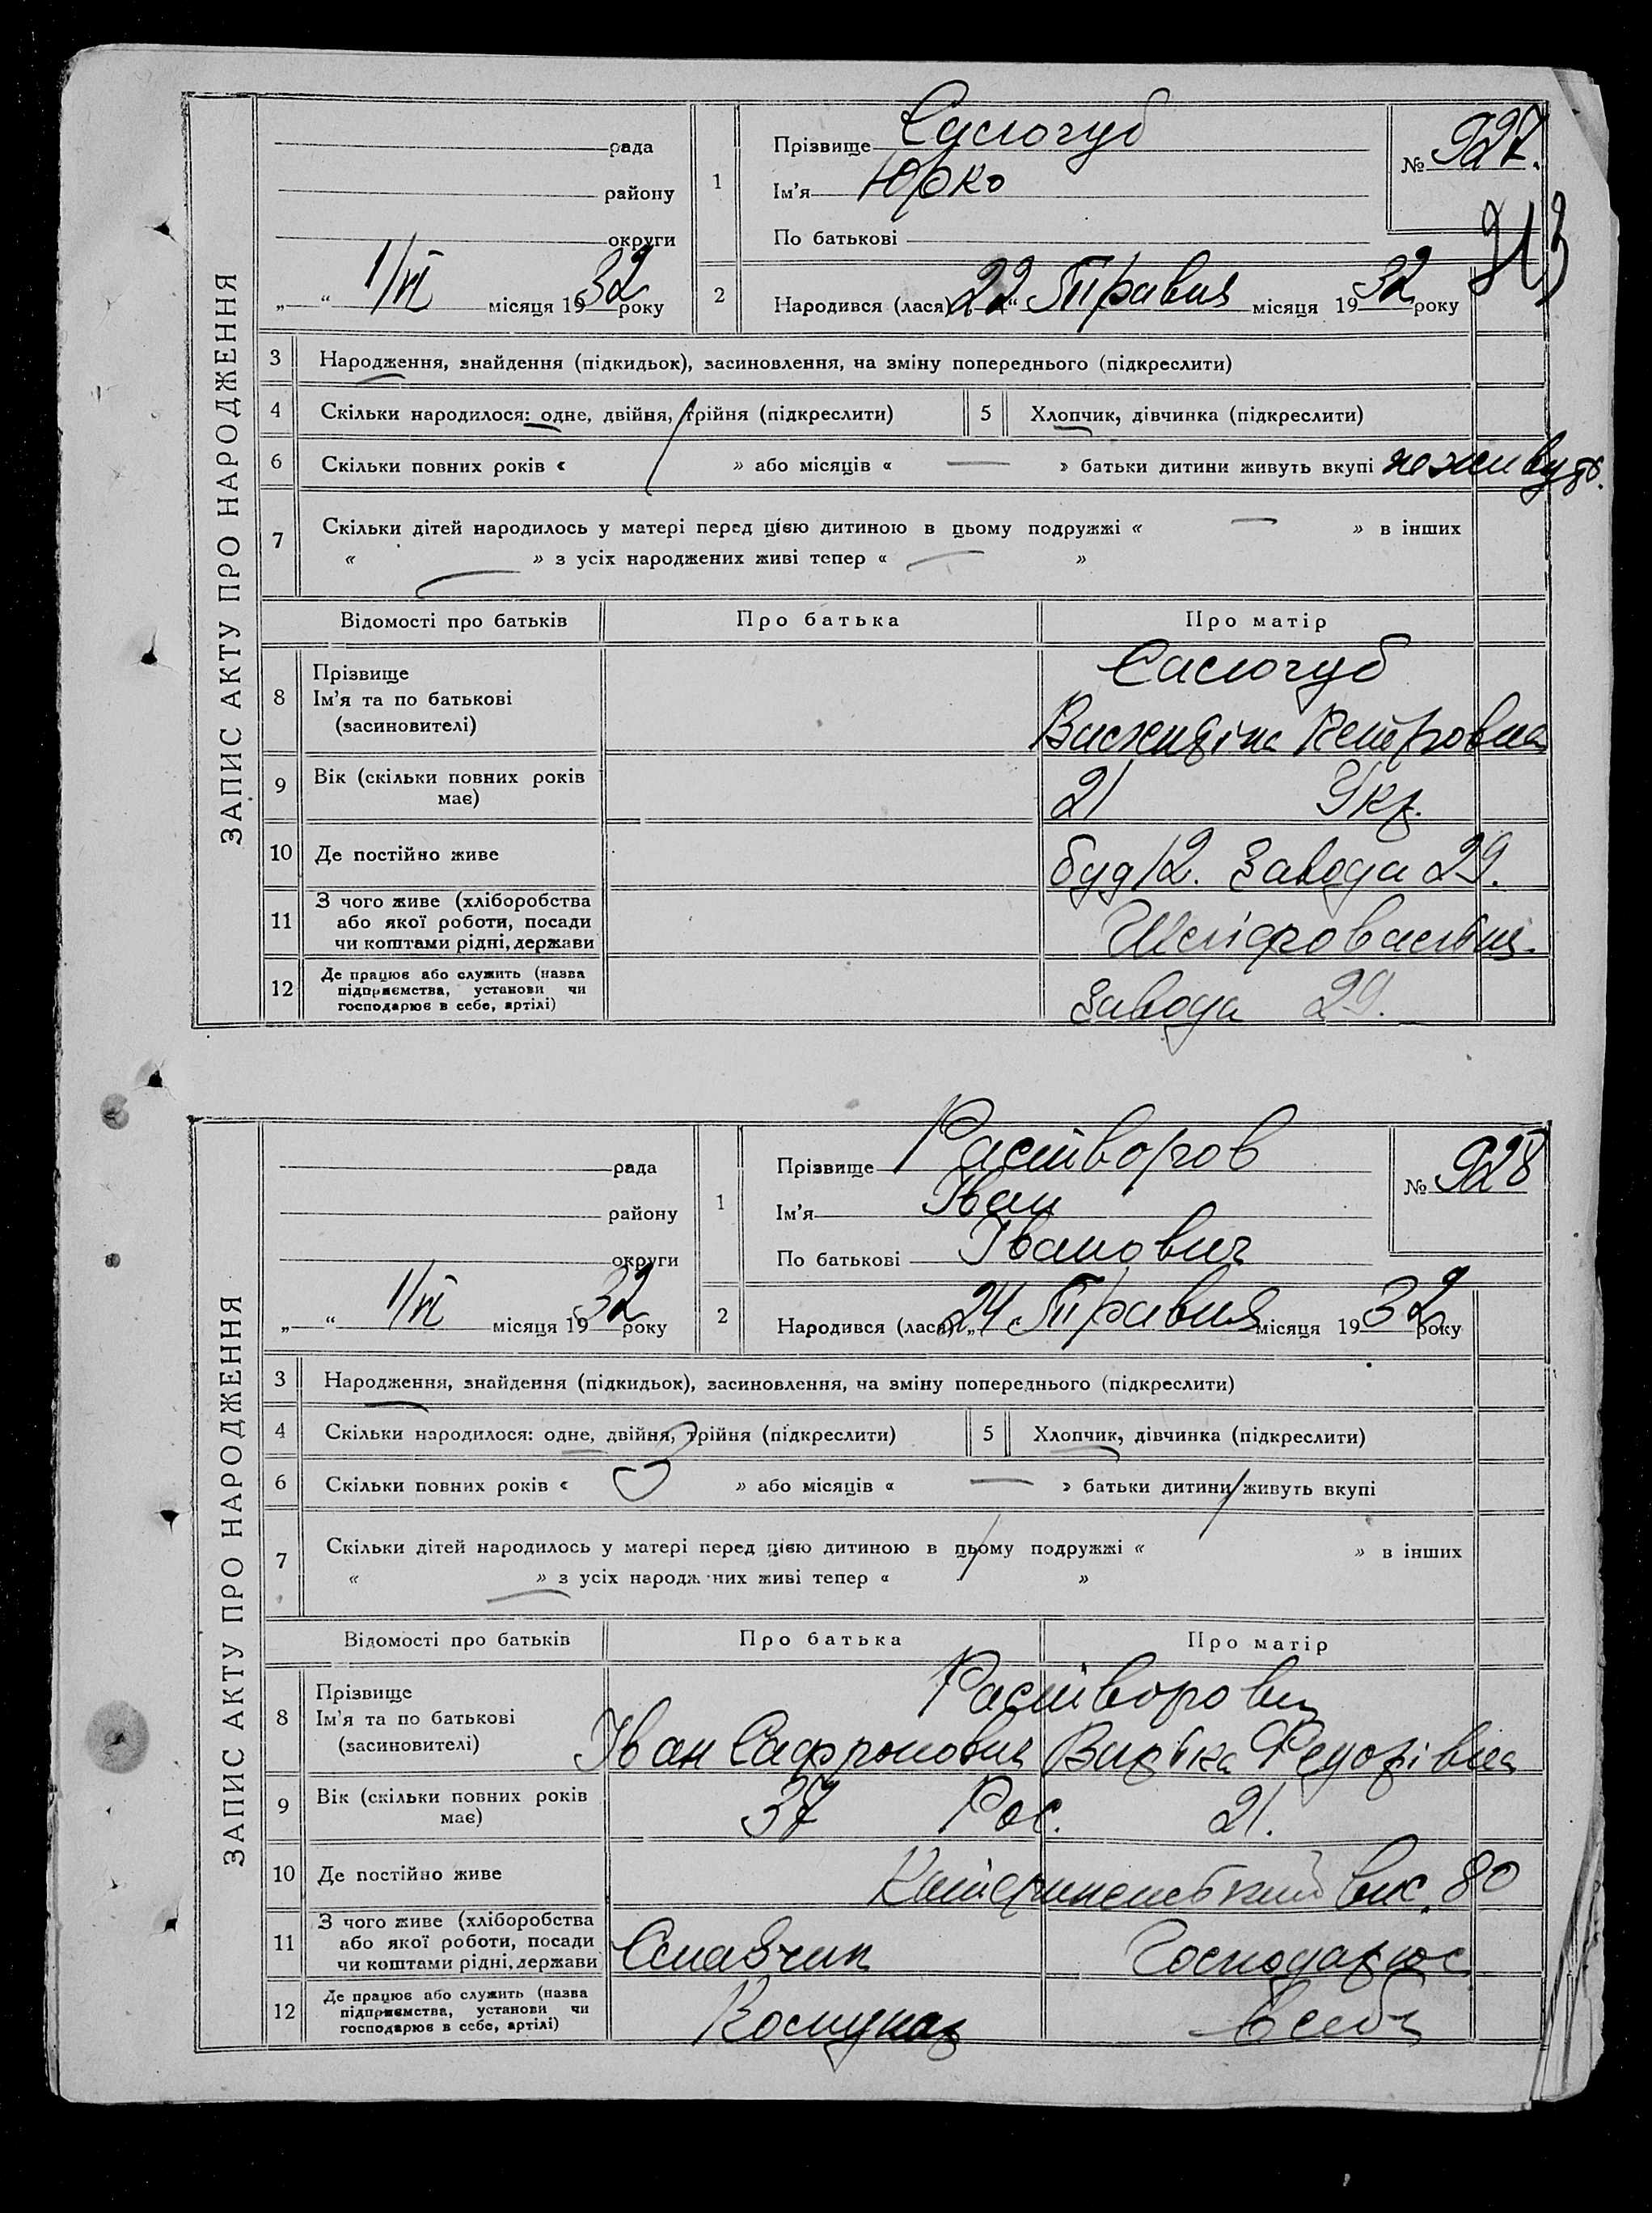 ЗАПИС АКТУ ПРО НАРОДЖЕННЯ
рада
району
округи
„ “ 1/VI місяця 1932 року
1
Прізвище
Ім'я Юрко
По батькові
№ 927.
2
Народився (лася) 22 “ Травня місяця 1932 року
3 Народження, знайдення (підкидьок), засиновлення, на зміну попереднього (підкреслити)
4 Скільки народилося: одне, двійня, трійня (підкреслити)
5 Хлопчик, дівчинка (підкреслити)
6 Скільки повних років « » або місяців « — » батьки дитини живуть вкупі не живуть.
7 Скільки дітей народилось у матері перед цією дитиною в цьому подружжі « — » в інших
« — » з усіх народжених живі тепер « — »
Відомості про батьків Про батька Про матір
8 Прізвище
Ім'я та по батькові
(засиновителі)
Петровна
9 Вік (скільки повних років має)
21 Укр.
10 Де постійно живе
буд 12. Завода 29.
11 З чого живе (хліборобства або якої роботи, посади чи коштами рідні, держави
12 Де працює або служить (назва підприємства, установи чи господарює в себе, артілі)
Завода 29.
ЗАПИС АКТУ ПРО НАРОДЖЕННЯ
рада
району
округи
„ “ 1/VI місяця 1932 року
1
Прізвище Растворов
Ім'я Іван
По батькові Іванович
№ 928
2
Народився (лася) „24 “ Травня місяця 1932 року
3 Народження, знайдення (підкидьок), засиновлення, на зміну попереднього (підкреслити)
4 Скільки народилося: одне, двійня, трійня (підкреслити)
5 Хлопчик, дівчинка (підкреслити)
6 Скільки повних років « » або місяців « — » батьки дитини живуть вкупі
7 Скільки дітей народилось у матері перед цією дитиною в цьому подружжі « » в інших
« » з усіх народжених живі тепер « »
Відомості про батьків Про батька Про матір
8 Прізвище
Ім'я та по батькові
(засиновителі)
Растворови
Іван Сафронович Федорівна
9 Вік (скільки повних років має)
37 Рос. 21.
10 Де постійно живе
80
11 З чого живе (хліборобства або якої роботи, посади чи коштами рідні, держави
Господарює
12 Де працює або служить (назва підприємства, установи чи господарює в себе, артілі)
Комунар в себе